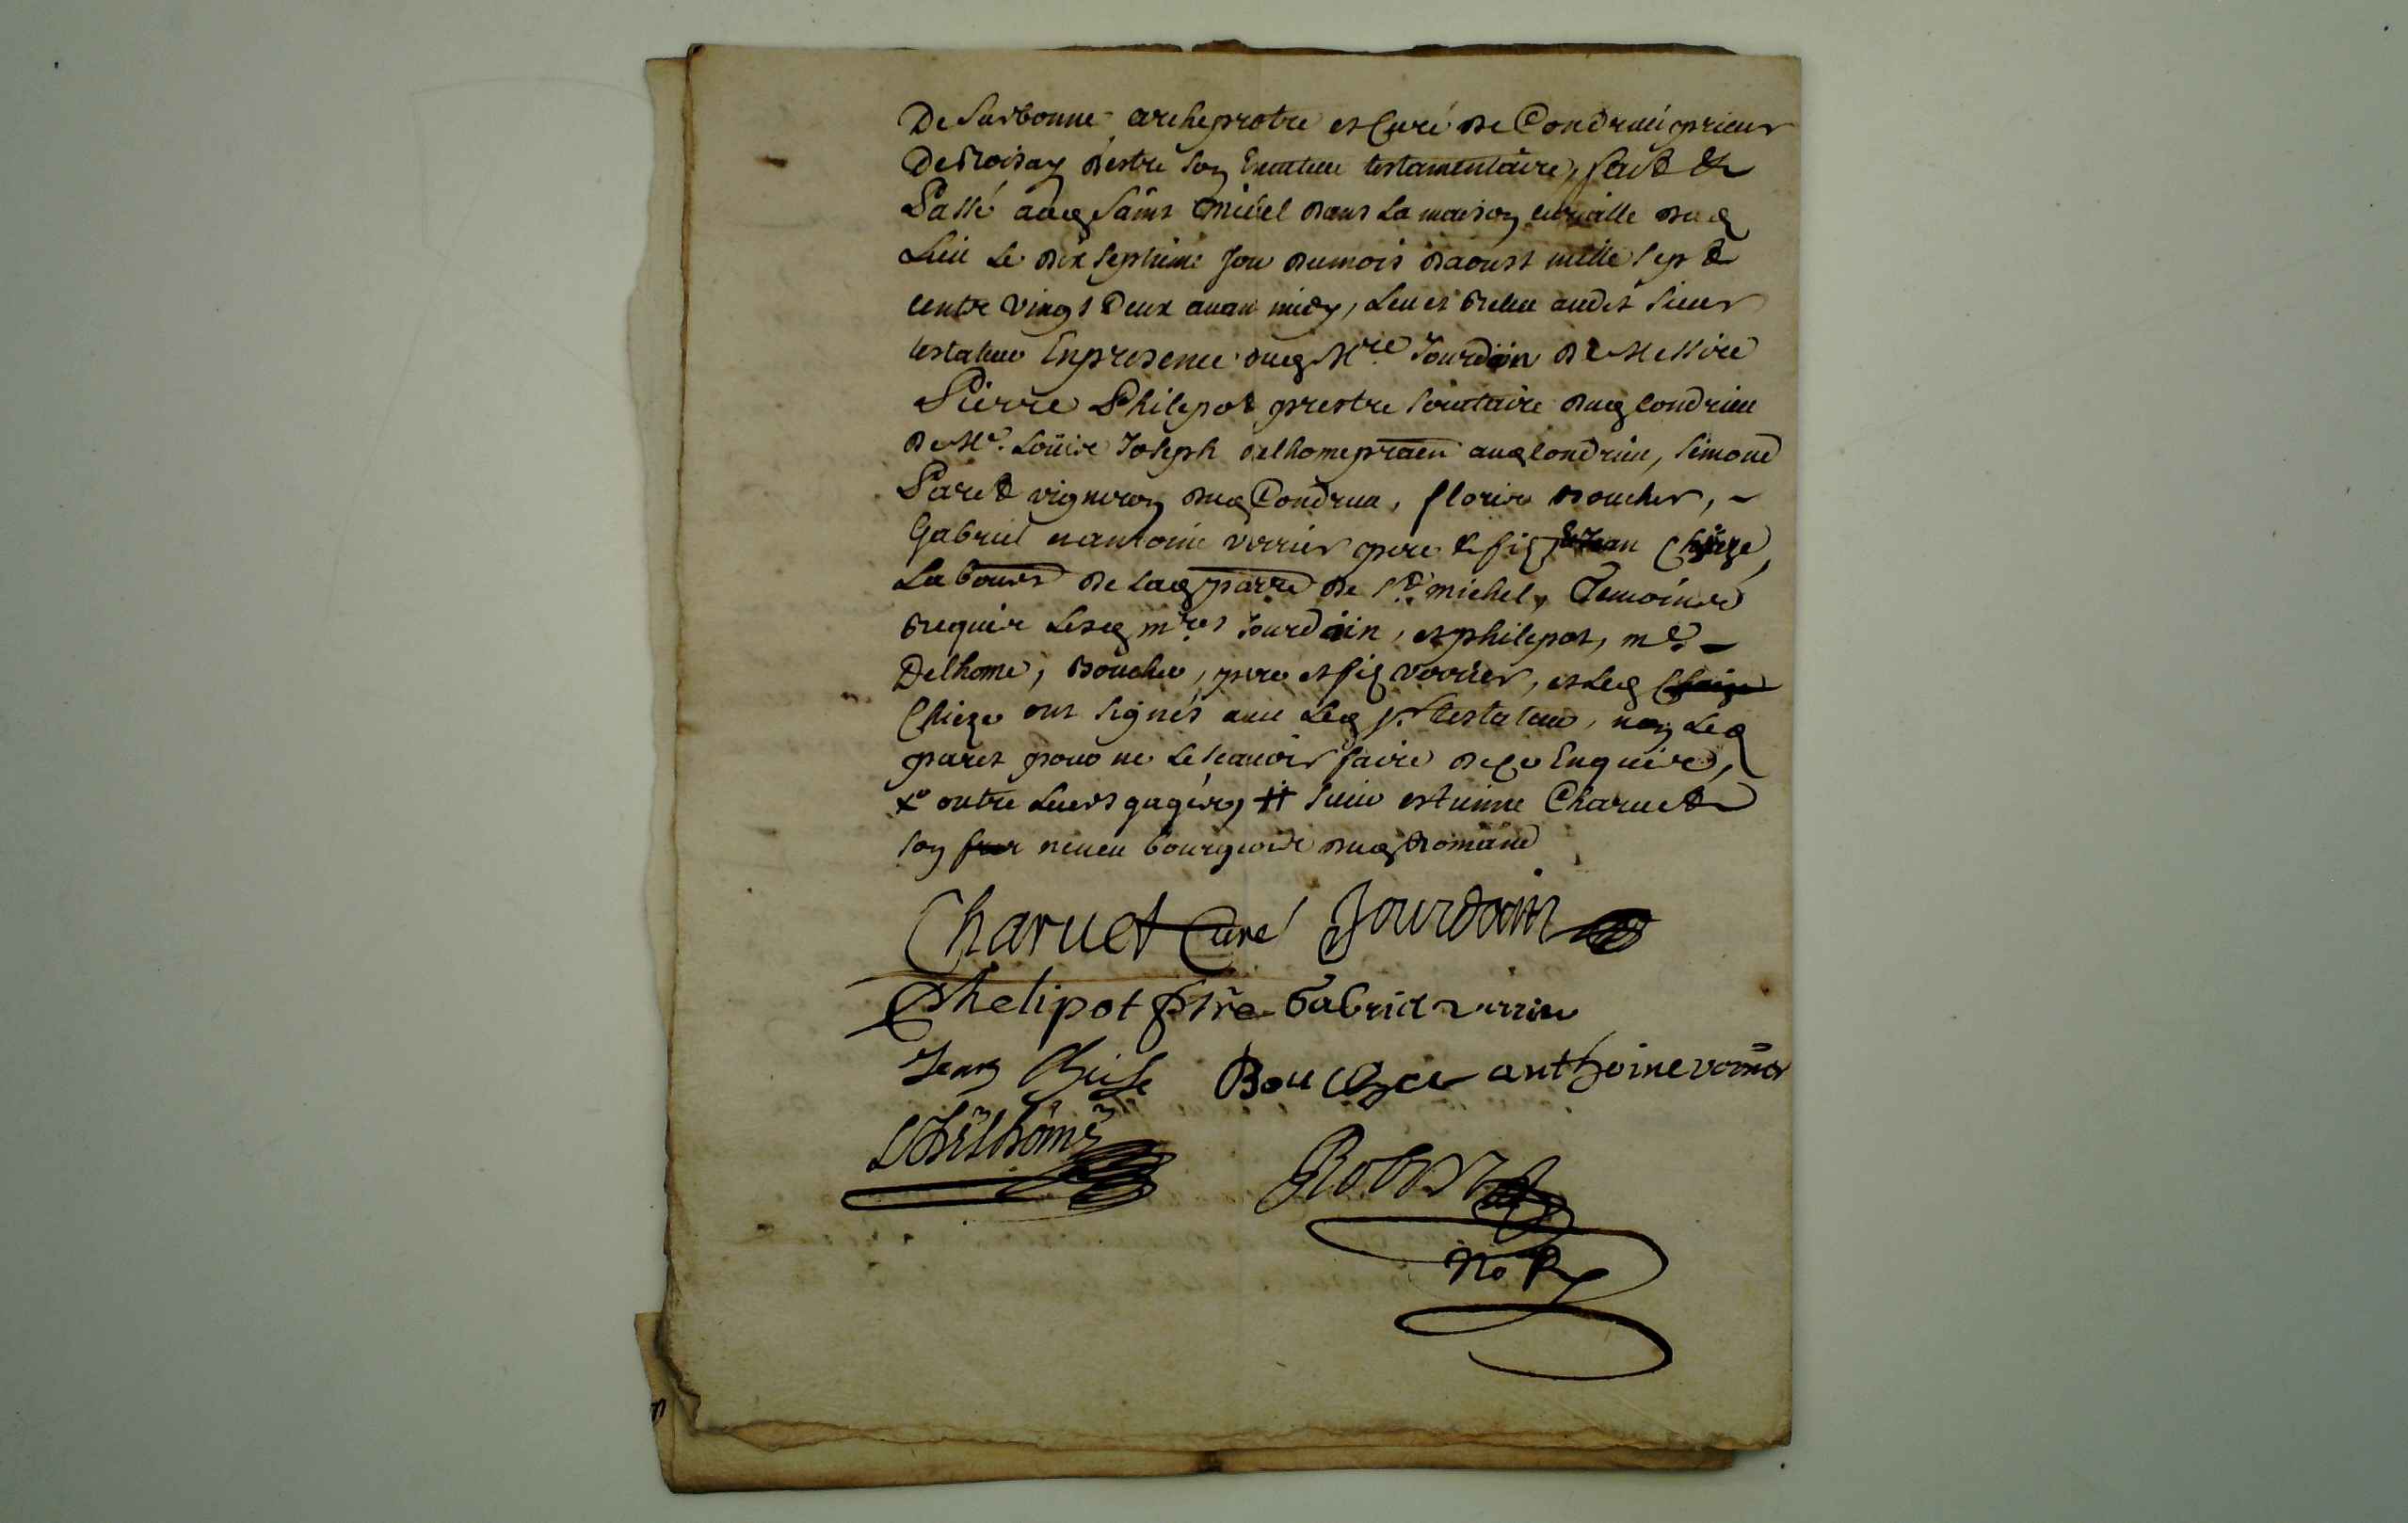 De Sarbonne archeprotre et Curé de Condrieu prieur
De Roisay d'estre son Executeur testamentaire, fait &
Passé aud Saint Michel dans La maison curialle dud
Lieu Le dix septieme Jour du mois d'aoust mille sept
cents vingt Deux avant midy, Leu et Releu audit sieur
testateur En presence dud Mre Jourdain de Messire
Pierre Philipot prestre soicitaire dud Condrieu
de Me. Loüis Joseph delhome praen aud Condrieu, simond
Paret vigneron dud Condrieu, florie Boucher,
Gabriel et antoine verrier pere & fis Et Jean Chieze,
Labours de lad parre de St. michel, Temoins
Requis Lesd mres Jourdain, et philipot, me.
Delhome, Boucher, pere et fis verrier, et Led
Chieze ont signés avec Led sr. testateur, non Led
paret pour ne Le scavoir faire de ce Enquis,
xo outre Luers gagery # sieur estienne Charuet
son neveu bourgeois dud Romand
Charuet Curé Jourdain
Phelipot ptre Gabriel verrier
Jean Chiese Boucher anthoine verrier
LJDelhome
Robert
No Re